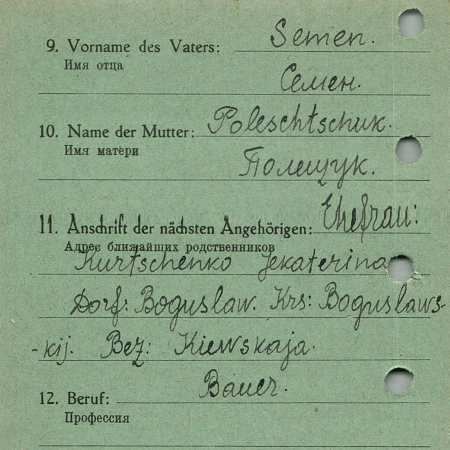 9. Vorname des Vaters: Semen.
Имя отца
Семен.
10. Name der Mutter: Poleschtschuk.
Имя матери
Полещук.
11. Anschrift der nächsten Angehörigen: Ehefrau:
Адрес ближайших родственников
Kurtschenko Jekaterina
Dorf: Boguslaw. Krs: Boguslaws-
-kij. Bez: Kiewskaja.
12. Beruf: Bauer.
Профессия